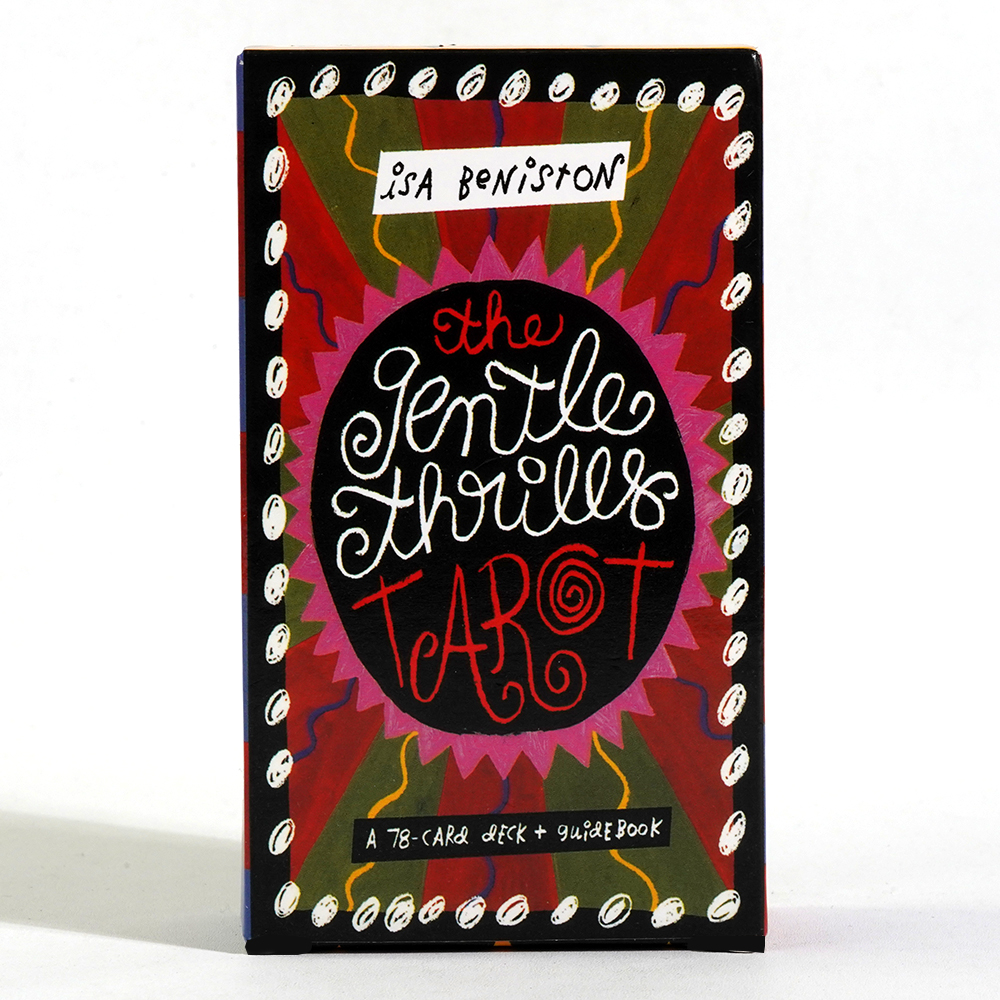 isA BeNiStON
the
gentle
thrills
TAROT
A 78-CARd dECK + guidEBOOK